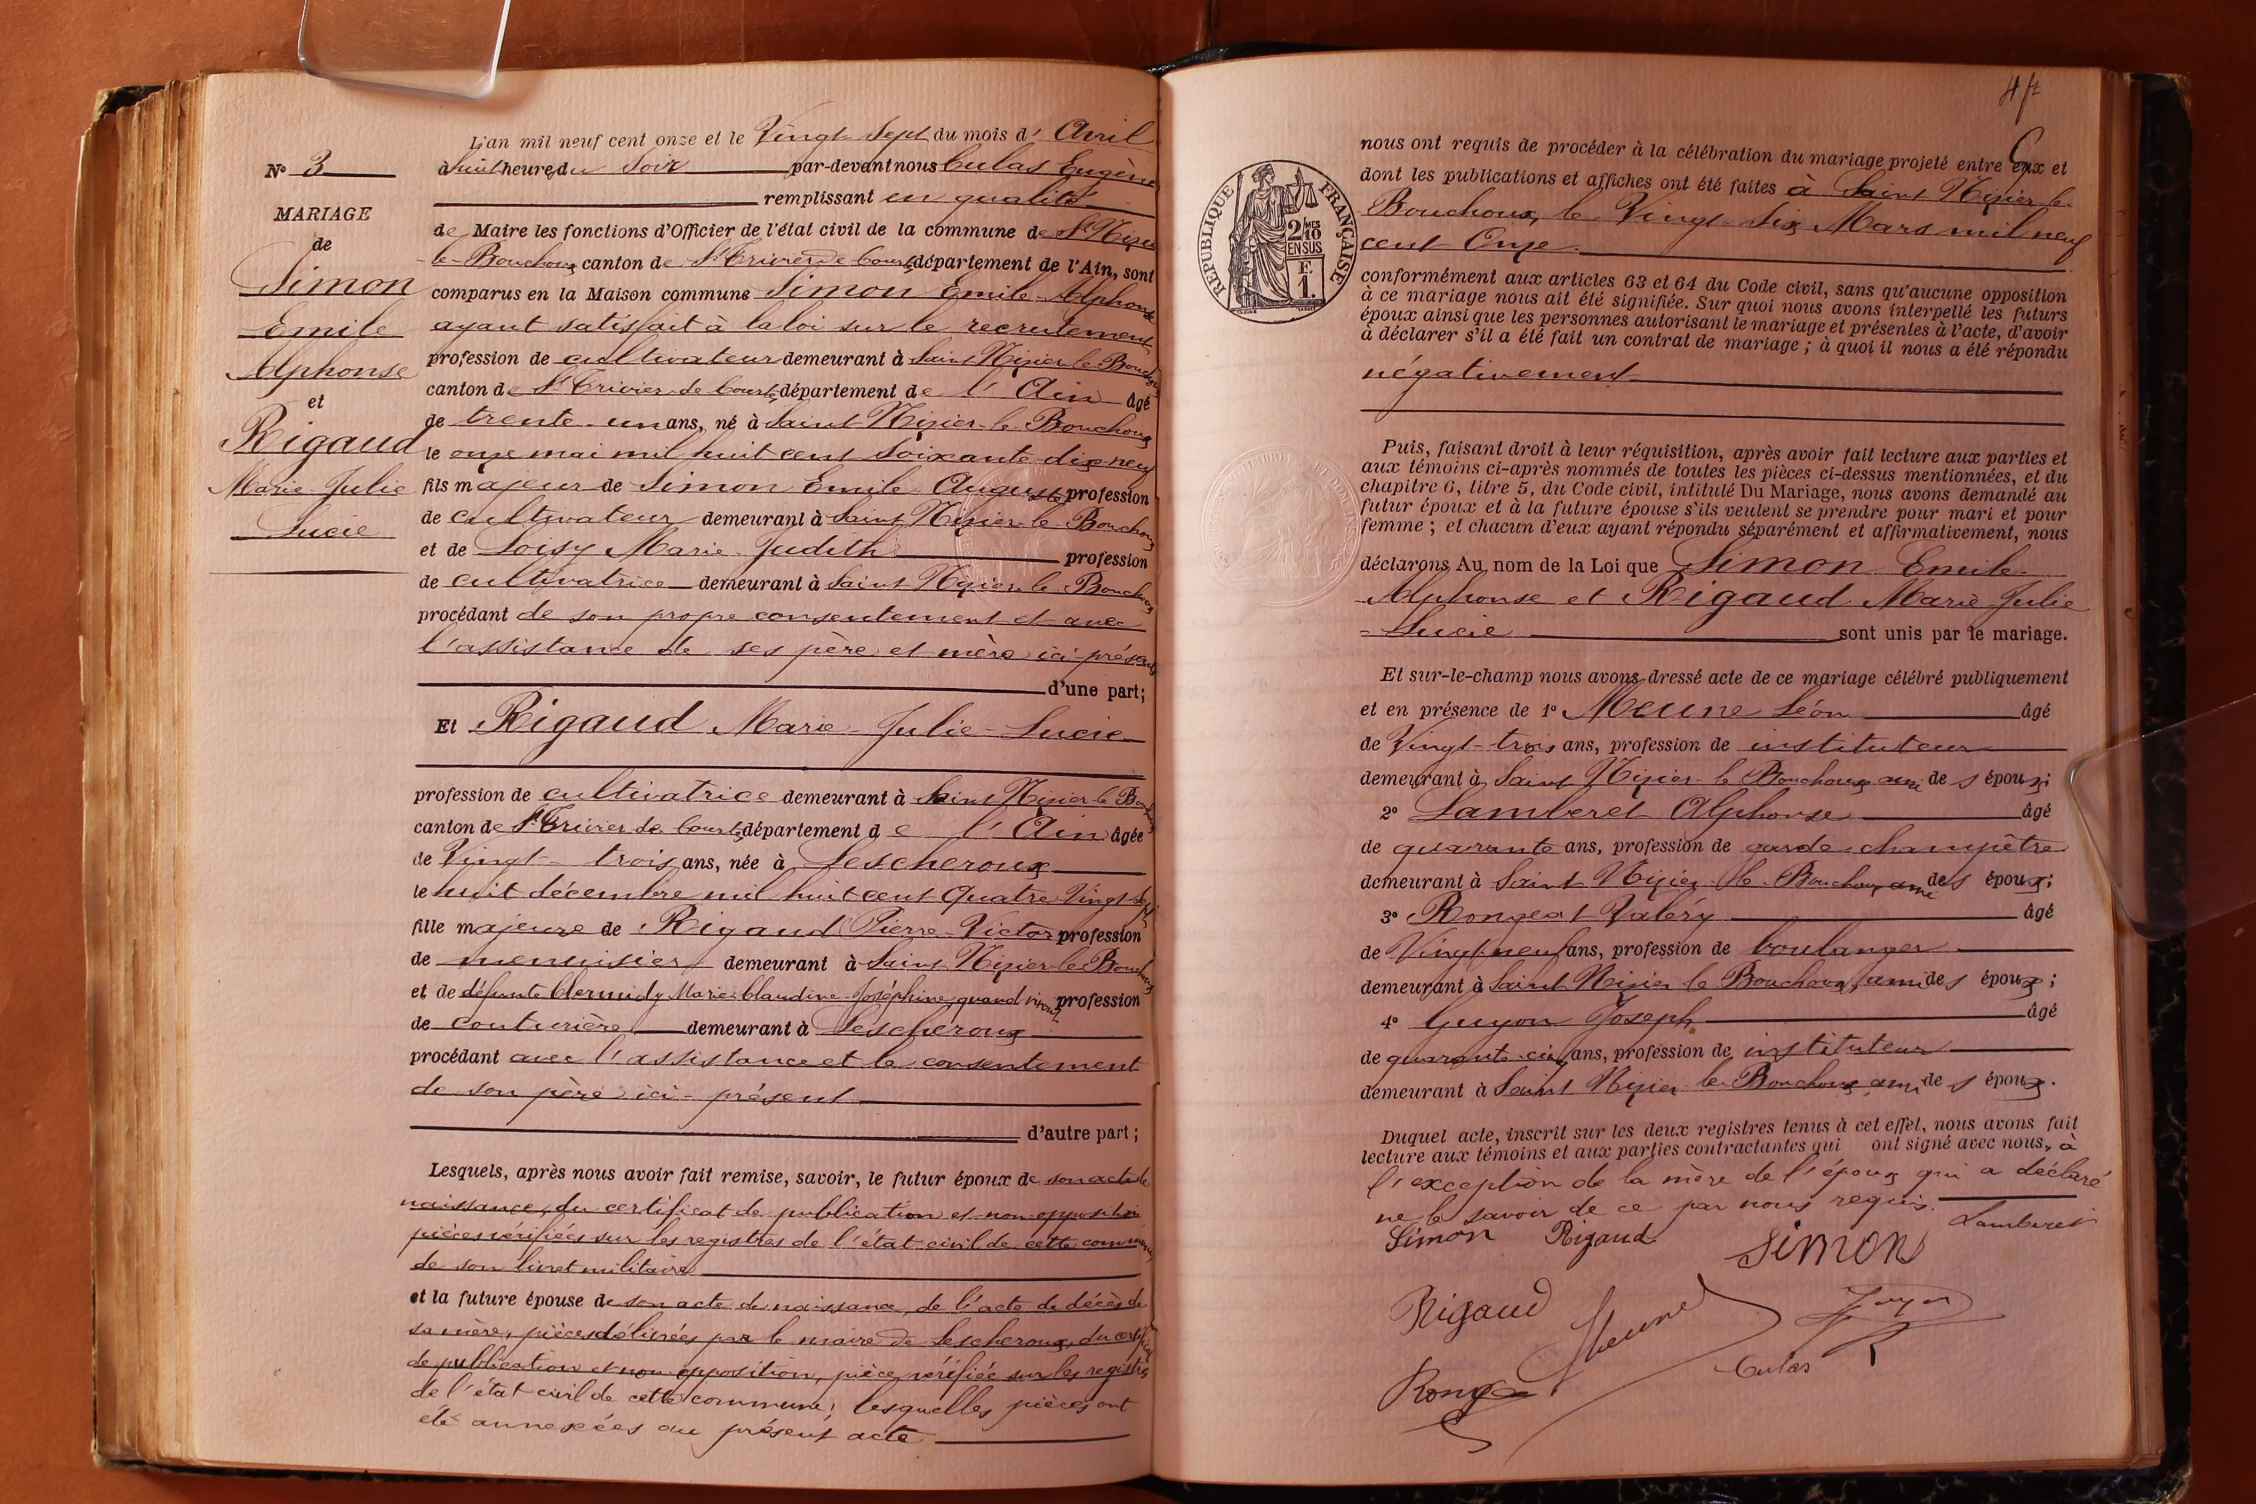 L'an mil neuf cent onze et le Vingt Sept du mois d' Avril
N° 3
à huit heures du Soir par-devant nous Culas Eugène
remplissant en qualité
MARIAGE
de Maire les fonctions d'Officier de l'état civil de la commune de St Nizier
de
le Bouchoux canton de St Trivier de Courtes département de l'Ain, sont
Simon
comparus en la Maison commune Simon Emile Alphonse
Emile
ayant satisfait à la loi sur le recrutement
Alphonse
profession de cultivateur demeurant à Saint Nizier le Bouchoux
canton de St Trivier de Courtes département de l'Ain âgé
et
de trente un ans, né à Saint Nizier le Bouchoux
Rigaud
le onze mai mil huit cent soixante dix neuf
Marie Julie
fils majeur de Simon Emile Auguste profession
de cultivateur demeurant à Saint Nizier le Bouchoux
Lucie
et de Loisy Marie Judith profession
de cultivatrice demeurant à Saint Nizier le Bouchoux
procédant de son propre consentement et avec
l'assistance de ses père et mère ici présents
d'une part;
Et Rigaud Marie Julie Lucie
profession de cultivatrice demeurant à Saint Nizier le Bouchoux
canton de St Trivier de Courtes département de l'Ain âgée
de Vingt trois ans, née à Lescheroux
le huit décembre mil huit cent quatre Vingt sept
fille majeure de Rigaud Pierre Victor profession
de menuisier demeurant à Saint Nizier le Bouchoux
et de défunte Clermidy Marie Claudine Joséphine, quand vivait profession
de couturière demeurant à Lescheroux
procédant avec l'assistance et le consentement
de son père ici présent
d'autre part;
Lesquels, après nous avoir fait remise, savoir, le futur époux de son acte de
naissance, du certificat de publication et non opposition
pièces vérifiées sur les registres de l'état civil de cette commune,
de son livret militaire
et la future épouse de son acte de naissance, de l'acte de décès de
sa mère, pièces délivrées par le maire de Lescheroux, du certificat
de publication et non opposition, pièce vérifiée sur les registres
de l'état civil de cette commune; lesquelles pièces ont
été annexées au présent acte
47
nous ont requis de procéder à la célébration du mariage projeté entre eux et
dont les publications et affiches ont été faites à Saint Nizier le
Bouchoux, le Vingt Six Mars mil neuf
cent Onze
RÉPUBLIQUE FRANÇAISE
2/10 MES
EN SUS
F.
1.
conformément aux articles 63 et 64 du Code civil, sans qu'aucune opposition
à ce mariage nous ait été signifiée. Sur quoi nous avons interpellé les futurs
époux ainsi que les personnes autorisant le mariage et présentes à l'acte, d'avoir
à déclarer s'il a été fait un contrat de mariage; à quoi il nous a été répondu
négativement
Puis, faisant droit à leur réquisition, après avoir fait lecture aux parties et
aux témoins ci-après nommés de toutes les pièces ci-dessus mentionnées, et du
chapitre 6, titre 5, du Code civil, intitulé Du Mariage, nous avons demandé au
futur époux et à la future épouse s'ils veulent se prendre pour mari et pour
femme; et chacun d'eux ayant répondu séparément et affirmativement, nous
déclarons Au nom de la Loi que Simon Emile
Alphonse et Rigaud Marie Julie
Lucie sont unis par le mariage.
Et sur-le-champ nous avons dressé acte de ce mariage célébré publiquement
et en présence de 1° Meune Léon âgé
de Vingt-trois ans, profession de instituteur
demeurant à Saint Nizier le Bouchoux ami des époux;
2° Lamberet Alphonse âgé
de quarante ans, profession de garde champêtre
demeurant à Saint Nizier le Bouchoux ami des époux;
3° Rongeat Valéry âgé
de Vingt neuf ans, profession de boulanger
demeurant à Saint Nizier le Bouchoux, ami des époux;
4° Guyon Joseph âgé
de quarante cinq ans, profession de instituteur
demeurant à Saint Nizier le Bouchoux ami des époux.
Duquel acte, inscrit sur les deux registres tenus à cet effet, nous avons fait
lecture aux témoins et aux parties contractantes qui ont signé avec nous, à
l'exception de la mère de l'époux qui a déclaré
ne le savoir de ce par nous requis.
Simon Rigaud Simon Lamberet
Rigaud Meune Guyon
Culas